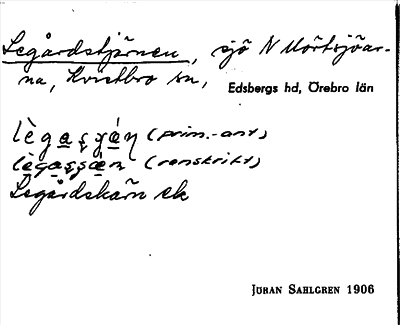 Legårdstjärnen, sjö N Mörtsjöar-
na, Kvistbro sn,
Edsbergs hd, Örebro län
(prim.-ant)
(renskrift)
Legårdskärn ek
JÖRAN SAHLGREN 1906